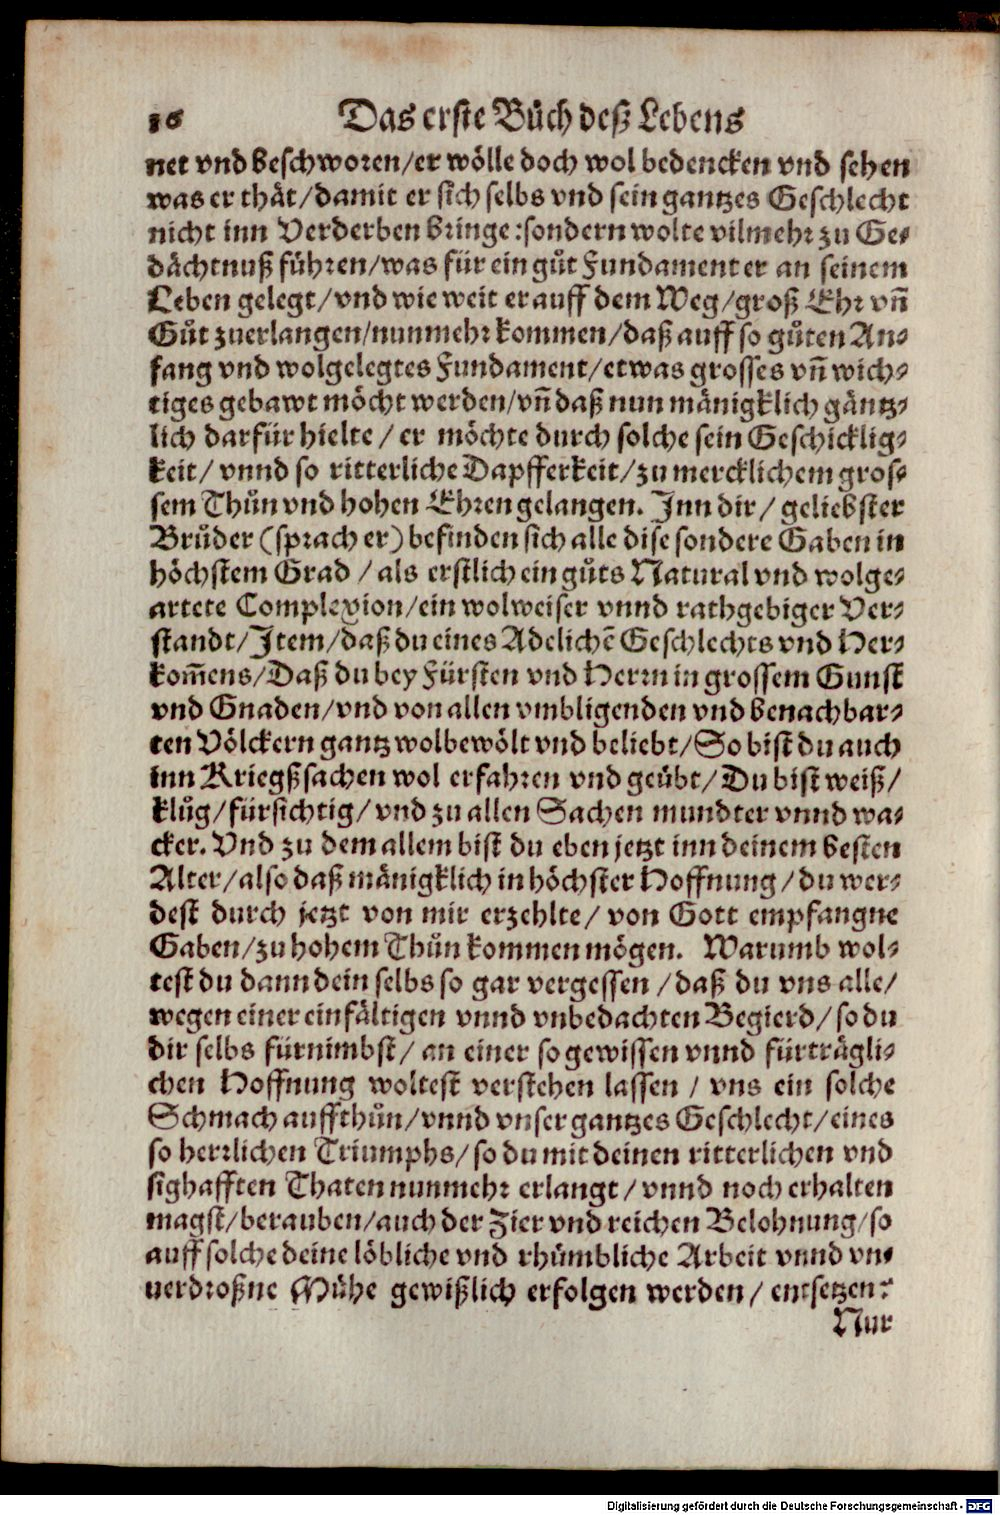 16 Das erste Bůch deß Lebens
net vnd beschworen/er wölle doch wol bedencken vnd sehen
was er thät/damit er sich selbs vnd sein gantzes Geschlecht
nicht inn Verderben bringe:sondern wolte vilmehr zu Ge-
dächtnuß führen/was für ein gůt Fundament er an seinem
Leben gelegt/vnd wie weit er auff dem Weg/groß Ehr vn̄
Gůt zuerlangen/nunmehr kommen/daß auff so gůten An-
fang vnd wolgelegtes Fundament/etwas grosses vn̄ wich-
tiges gebawt möcht werden/vn̄ daß nun mänigklich gäntz-
lich darfür hielte/ er möchte durch solche sein Geschicklig-
keit/ vnnd so ritterliche Dapfferkeit/zu mercklichem gros-
sem Thůn vnd hohen Ehren gelangen. Inn dir/ geliebster
Brůder (sprach er) befinden sich alle dise sondere Gaben in
höchstem Grad /als erstlich ein gůts Natural vnd wolge-
artete Complexion/ein wolweiser vnnd rathgebiger Ver-
standt/Item/daß du eines Adelichē Geschlechts vnd Her-
kom̄ens/Daß du bey Fürsten vnd Herrn in grossem Gunst
vnd Gnaden/vnd von allen vmbligenden vnd benachbar-
ten Völckern gantz wolbewölt vnd beliebt/So bist du auch
inn Kriegßsachen wol erfahren vnd geübt/Du bist weiß/
klůg/fürsichtig/vnd zu allen Sachen mundter vnnd wa-
cker. Vnd zu dem allem bist du eben jetzt inn deinem besten
Alter/also daß mänigklich in höchster Hoffnung/du wer-
dest durch jetzt von mir erzehlte/ von Gott empfangne
Gaben/zu hohem Thůn kommen mögen. Warumb wol-
test du dann dein selbs so gar vergessen /daß du vns alle/
wegen einer einfältigen vnnd vnbedachten Begierd/so du
dir selbs fürnimbst/ an einer so gewissen vnnd fürträgli-
chen Hoffnung woltest verstehen lassen / vns ein solche
Schmach auffthůn/vnnd vnser gantzes Geschlecht/eines
so herrlichen Triumphs/so du mit deinen ritterlichen vnd
sighafften Thaten nunmehr erlangt/vnnd noch erhalten
magst/berauben/auch der Zier vnd reichen Belohnung/so
auff solche deine löbliche vnd rhůmbliche Arbeit vnnd vn-
uerdroßne Mühe gewißlich erfolgen werden/ entsetzen?
Nur
Digitalisierung gefördert durch die Deutsche Forschungsgemeinschaft - DFG